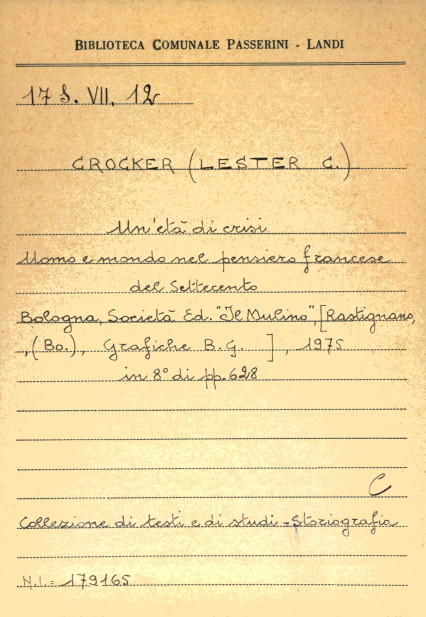 BIBLIOTECA COMUNALE PASSERINI - LANDI
17 S. VII. 12
CROCKER (LESTER G.)
Un'età di crisi
Uomo e mondo nel pensiero francese
del Settecento
Bologna, Società Ed. "Il Mulino", [Rastignano,
, (Bo.), Grafiche B.G. ], 1975
in 8° di pp. 628
C
Collezione di testi e di studi = Storiografia
N.I. = 179165